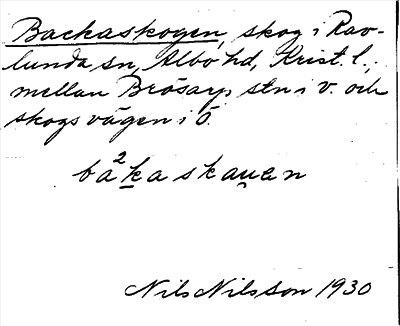 Backaskogen, skog i Rav-
lunda sn, Albo hd, Krist. l.,
mellan Brösarp stn i v. och
skogsvägen i ö.
ba²kaskau̯en
Nils Nilsson 1930